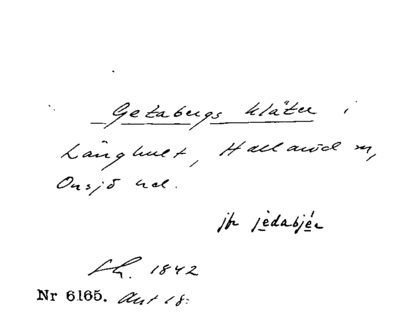 Getabergs kläter i
Långhult, Hallaröd sn,
Onsjö hd.
jfr jèdabjér
Lh. 1842
Nr 6165. Ant 18: